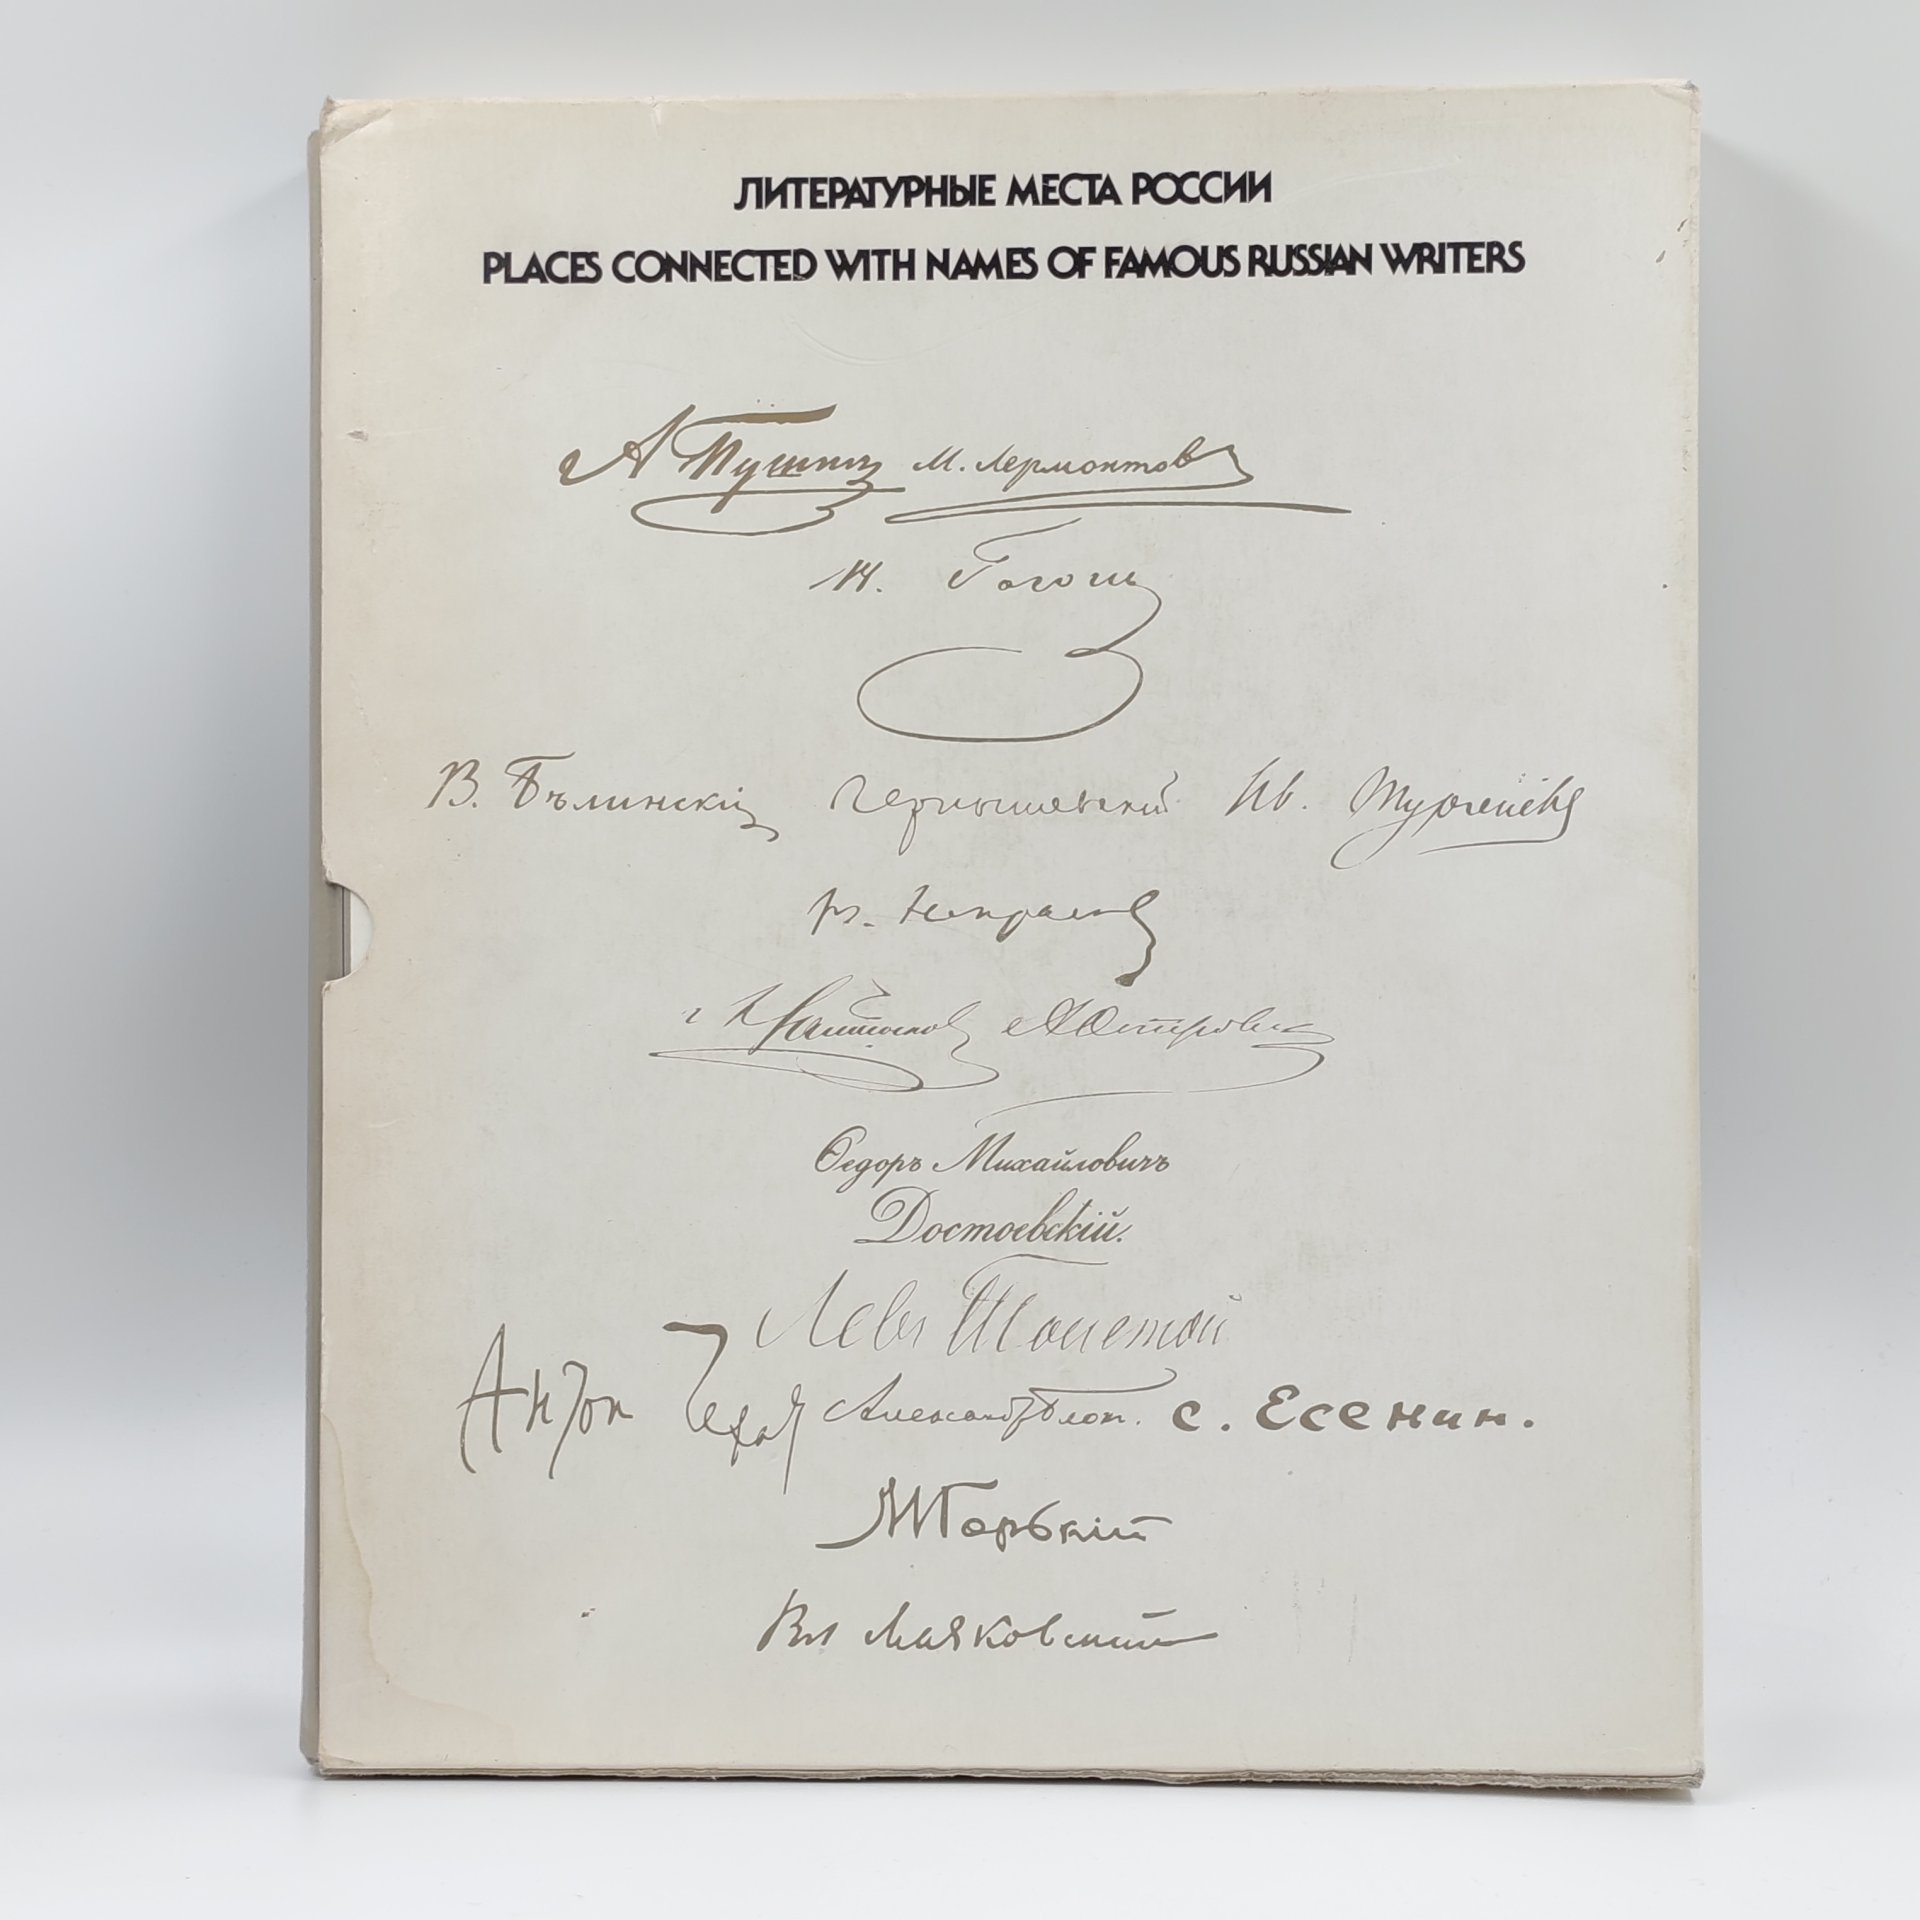 ЛИТЕРАТУРНЫЕ МЕСТА РОССИИ
PLACES CONNECTED WITH NAMES OF FAMOUS RUSSIAN WRITERS
А Пушкинъ М. Лермонтовъ
Н. Гоголь
В. Бѣлинскій Чернышевскій Ив. Тургеневъ
Н. Некрасов
Салтыков А Островск
Ѳедоръ Михайловичъ
Достоевскій.
Левъ Толстой
Антон Чехов Александр Блок. С. Есенин.
М Горькiй
Вл Маяковский